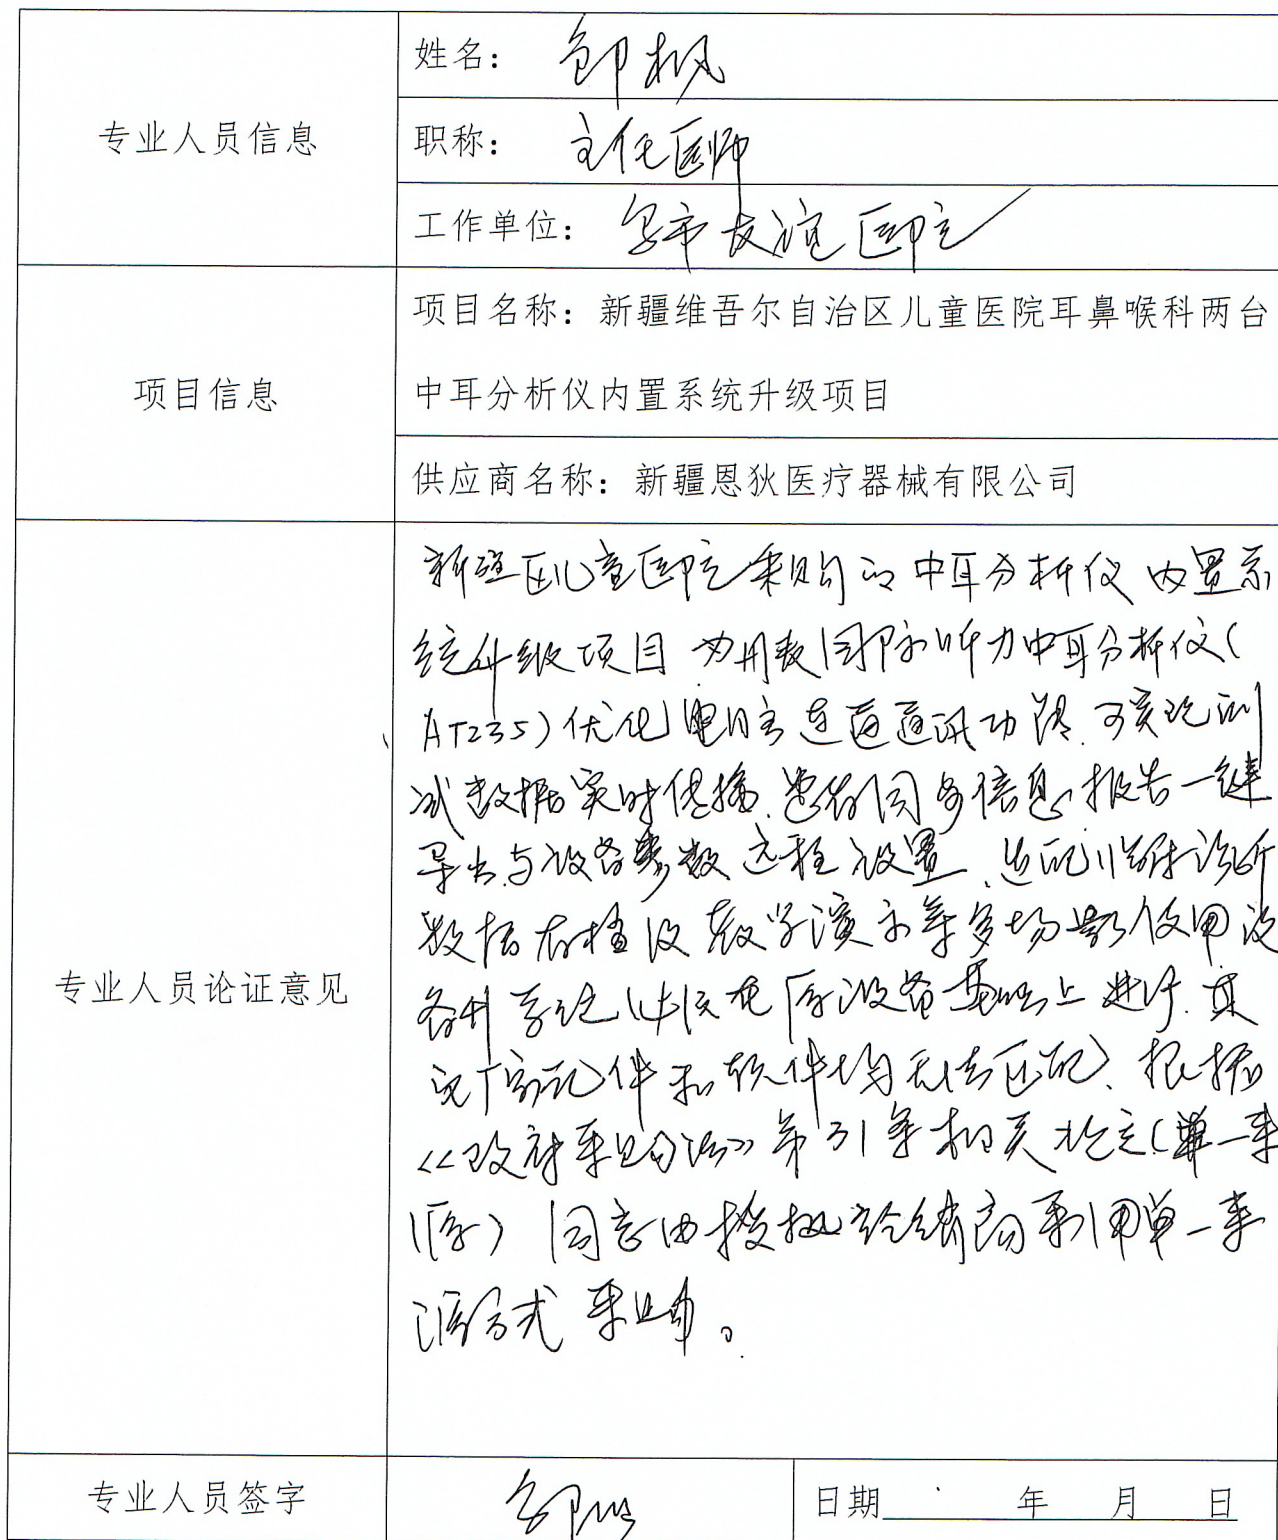 专业人员信息
姓名：邹枫
职称：主任医师
工作单位：乌市友谊医院
项目信息
项目名称：新疆维吾尔自治区儿童医院耳鼻喉科两台
中耳分析仪内置系统升级项目
供应商名称：新疆恩狄医疗器械有限公司
专业人员论证意见
新疆区儿童医院采购的中耳分析仪内置系
统升级项目为丹麦国际听力中耳分析仪（
AT235）优化 通讯功能.可实现测
试数据实时传输.患者同步信息.报告一键
导出.与设备参数远程设置、适配临床诊断
数据存档及教学演示等多场景使用设
备升系统 在原设备基础上进行.其
它厂家配件和软件均无法匹配、根据
《政府采购法》第31条相关规定（单一来
源）同意由授权经销商采用单一来
源方式采购。
专业人员签字
日期 年 月 日